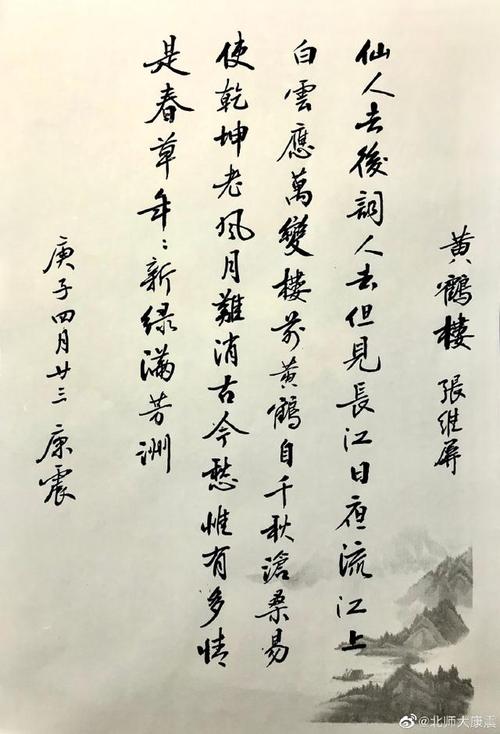 黃鶴樓 張維屏
仙人去後詞人去但見長江日夜流江上
白雲應萬變樓前黃鶴自千秋滄桑易
使乾坤老風月難消古今愁惟有多情
是春草年：新綠滿芳洲
庚子四月廿三 康震
@北师大康震